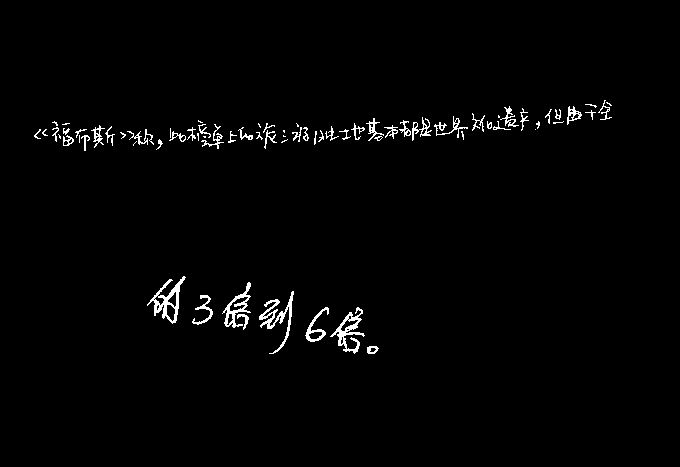 《福布斯》称，此榜单上的旅游胜地基本都是世界文化遗产，但由于全
的3倍到6倍。